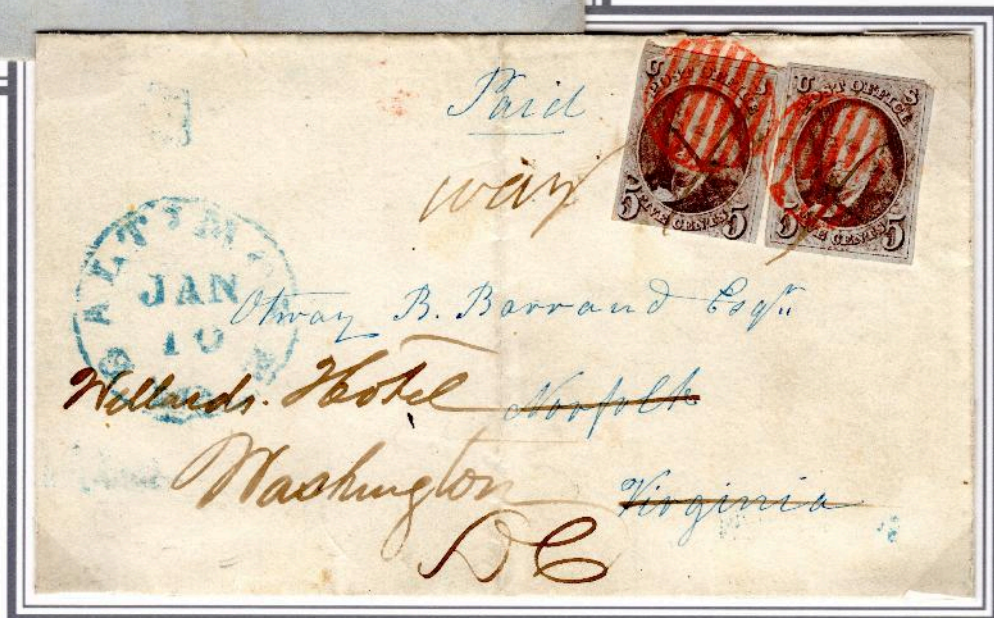 Paid
way
U S
POST OFFICE
5 FIVE CENTS 5
U S
POST OFFICE
5 FIVE CENTS 5
BALTIMORE
JAN
10
Otway B. Barraud Esqr.
Willards. Hotel Norfolk
Washington Virginia
DC